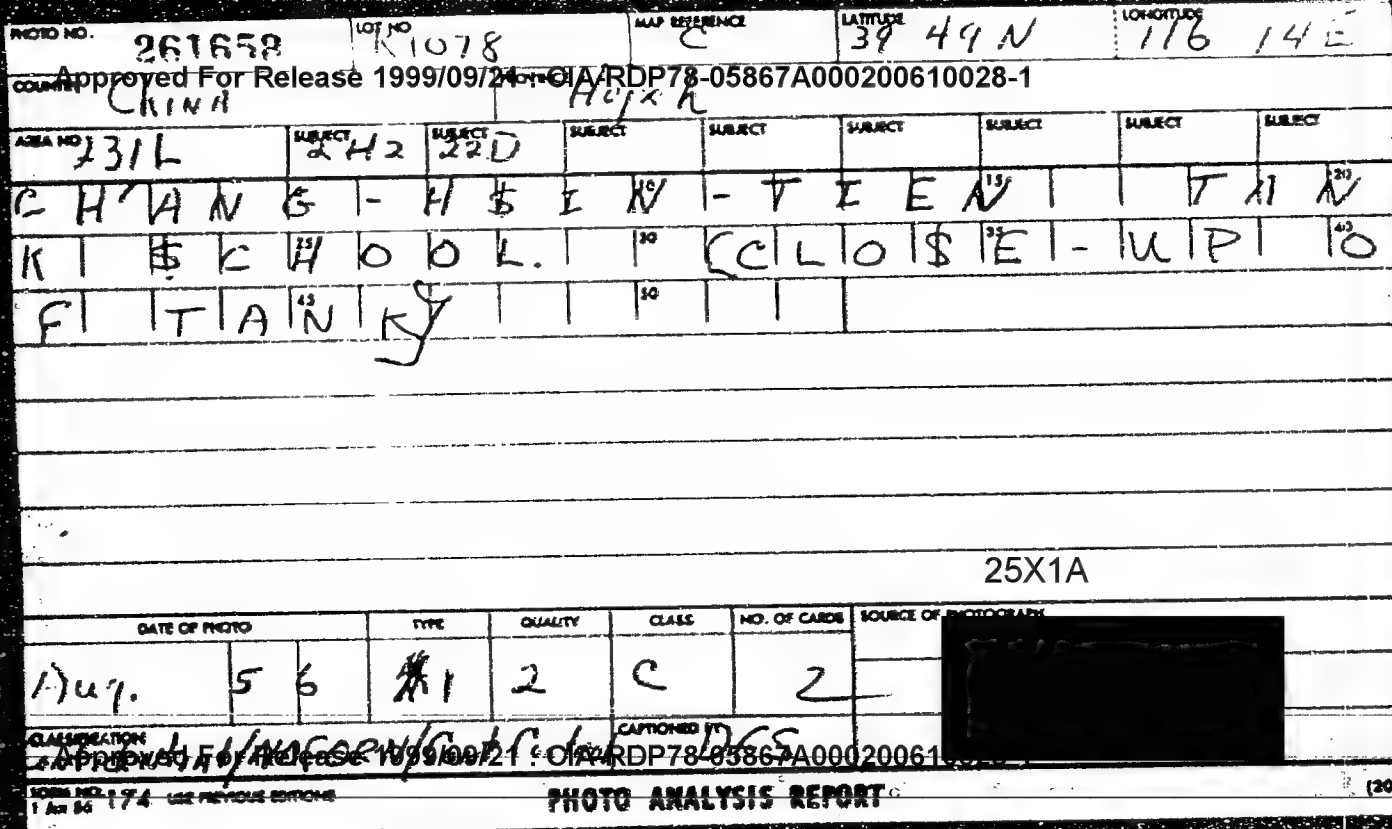 PHOTO NO. 261658 LOT NO K1078 MAP REFERENCE C LATITUDE 39 49 N LONGITUDE 116 14 E
Approved For Release 1999/09/21 : CIA-RDP78-05867A000200610028-1
COUNTRY CHINA
AREA NO 231L SUBJECT 2H2 SUBJECT 22D SUBJECT SUBJECT SUBJECT SUBJECT SUBJECT SUBJECT
CH'ANG-HSIN-TIEN TAN
K SCHOOL. (CLOSE-UP O
F TANK)
25X1A
DATE OF PHOTO TYPE QUALITY CLASS NO. OF CARDS SOURCE OF PHOTOGRAPH
Aug. 56 1 2 C 2
CLASSIFICATION CAPTIONED BY
Approved For Release 1999/09/21 : CIA-RDP78-05867A000200610028-1
FORM NO. 1 Apr 56 174 USE PREVIOUS EDITIONS PHOTO ANALYSIS REPORT (20